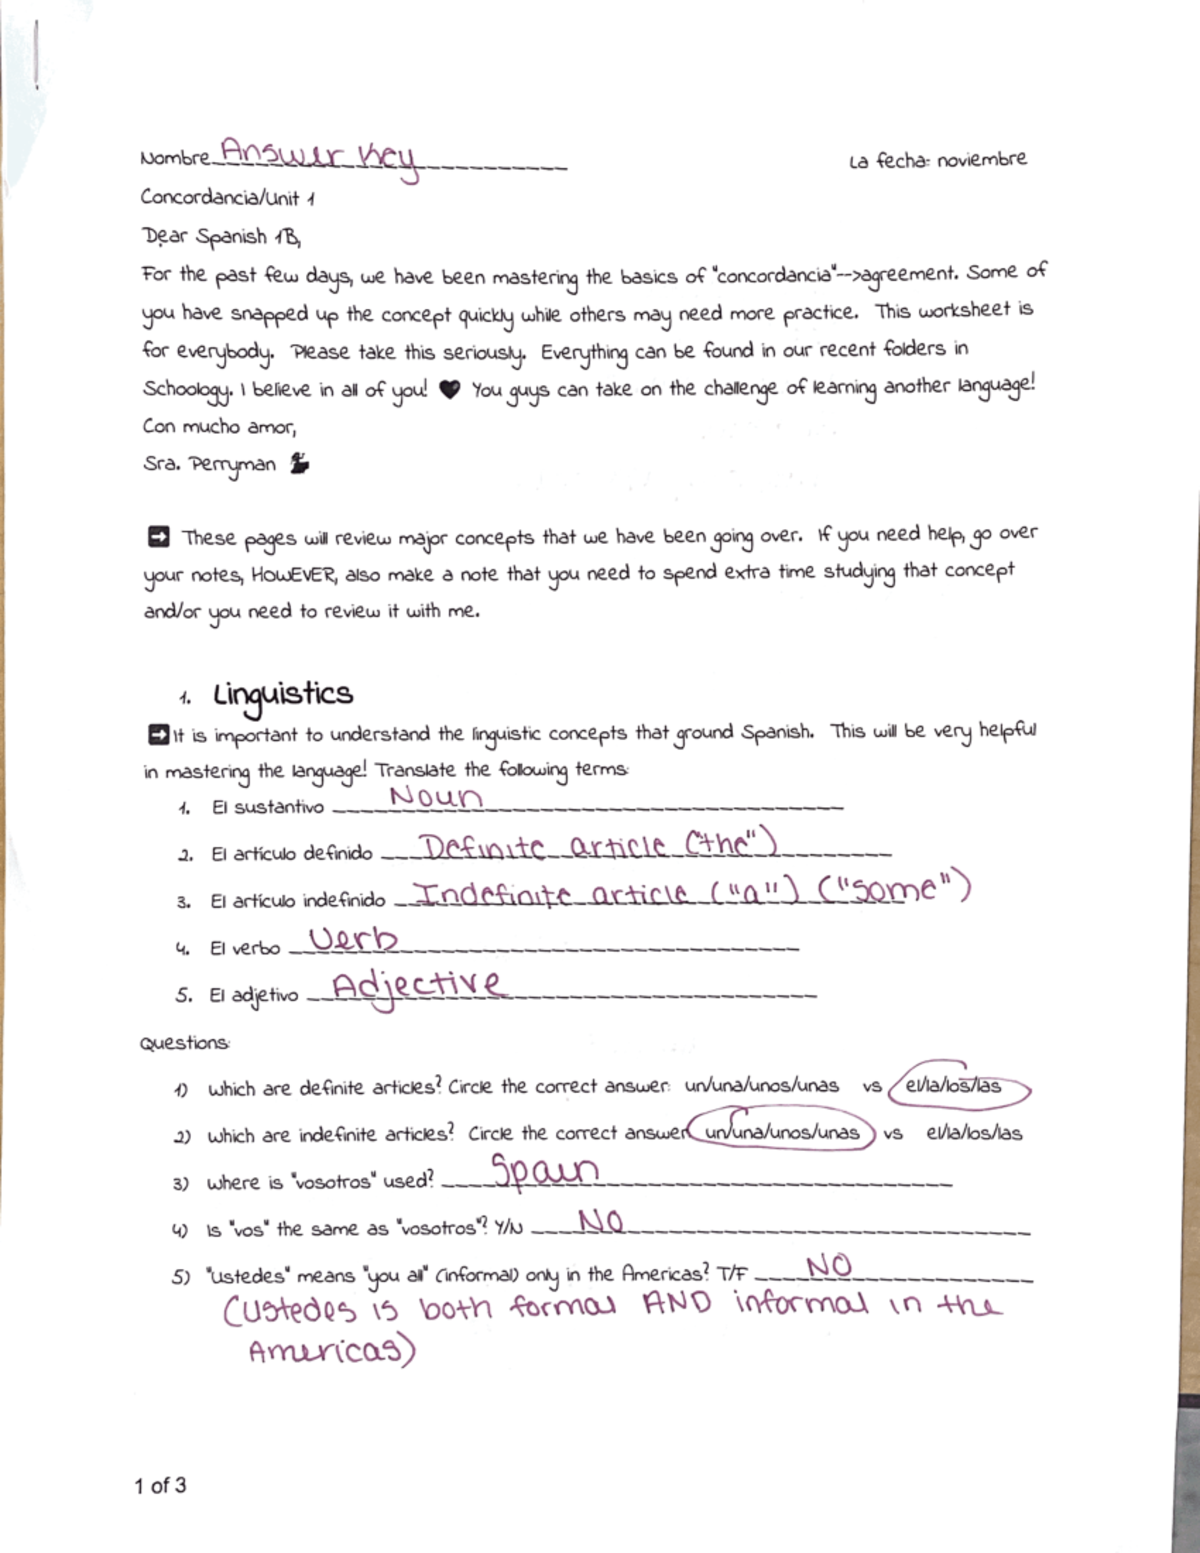 Nombre Answer Key La fecha: noviembre
Concordancia/Unit 1
Dear Spanish 1B,
For the past few days, we have been mastering the basics of "concordancia"-->agreement. Some of
you have snapped up the concept quickly while others may need more practice. This worksheet is
for everybody. Please take this seriously. Everything can be found in our recent folders in
Schoology. I believe in all of you! ♥ You guys can take on the challenge of learning another language!
Con mucho amor,
Sra. Perryman
➡ These pages will review major concepts that we have been going over. If you need help, go over
your notes, HOWEVER, also make a note that you need to spend extra time studying that concept
and/or you need to review it with me.
1. Linguistics
➡It is important to understand the linguistic concepts that ground Spanish. This will be very helpful
in mastering the language! Translate the following terms:
1. El sustantivo Noun
2. El artículo definido Definite article ("the")
3. El artículo indefinido Indefinite article ("a") ("some")
4. El verbo Verb
5. El adjetivo Adjective
Questions:
1) Which are definite articles? Circle the correct answer: un/una/unos/unas vs el/la/los/las
2) Which are indefinite articles? Circle the correct answer un/una/unos/unas vs el/la/los/las
3) Where is "vosotros" used? Spain
4) Is "vos" the same as "vosotros"? Y/N NO
5) "Ustedes" means "you all" (informal) only in the Americas? T/F NO
(Ustedes is both formal AND informal in the
Americas)
1 of 3